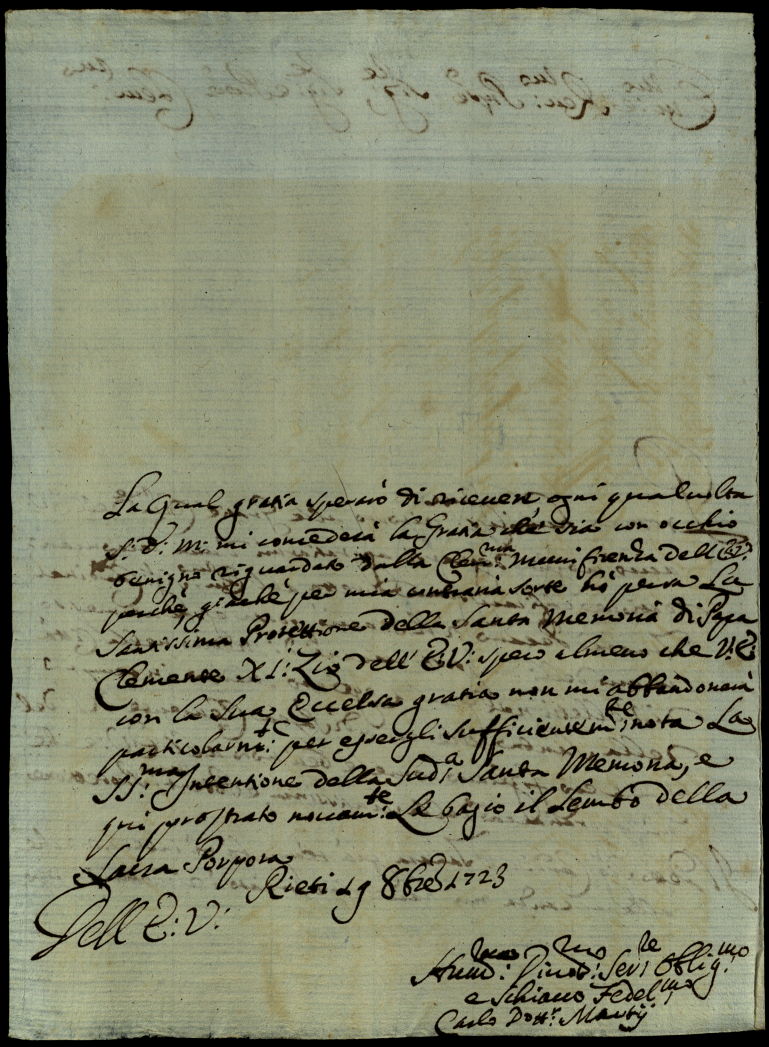 La qual gratia sperarò di ricevere ogni qualvolta
S: V: M: mi concederà la Gratia che sia con occhio
benigno riguardato dalla Clem:ma munificenza dell'E:V:
perche, giache per mia contraria sorte hò persa La
Santissima Protettione della Santa Memoria di Papa
Clemente XI: Zio dell' E:V: spero almeno che V: E:
con la sua Eccelsa gratia non mi abbandonerà
particolarm:te per essergli sufficientem:te nota La
SS:ma Intentione della Sud:a Santa Memoria, e
qui prostrato novam:te Le bagio il Lembo della
Sacra Porpora
Rieti 19 8bre 1723
Dell'E: V:
Humil:mo Divot:mo Ser:re Oblig:mo
e Schiavo Fedel:mo
Carlo Dott:r Martij